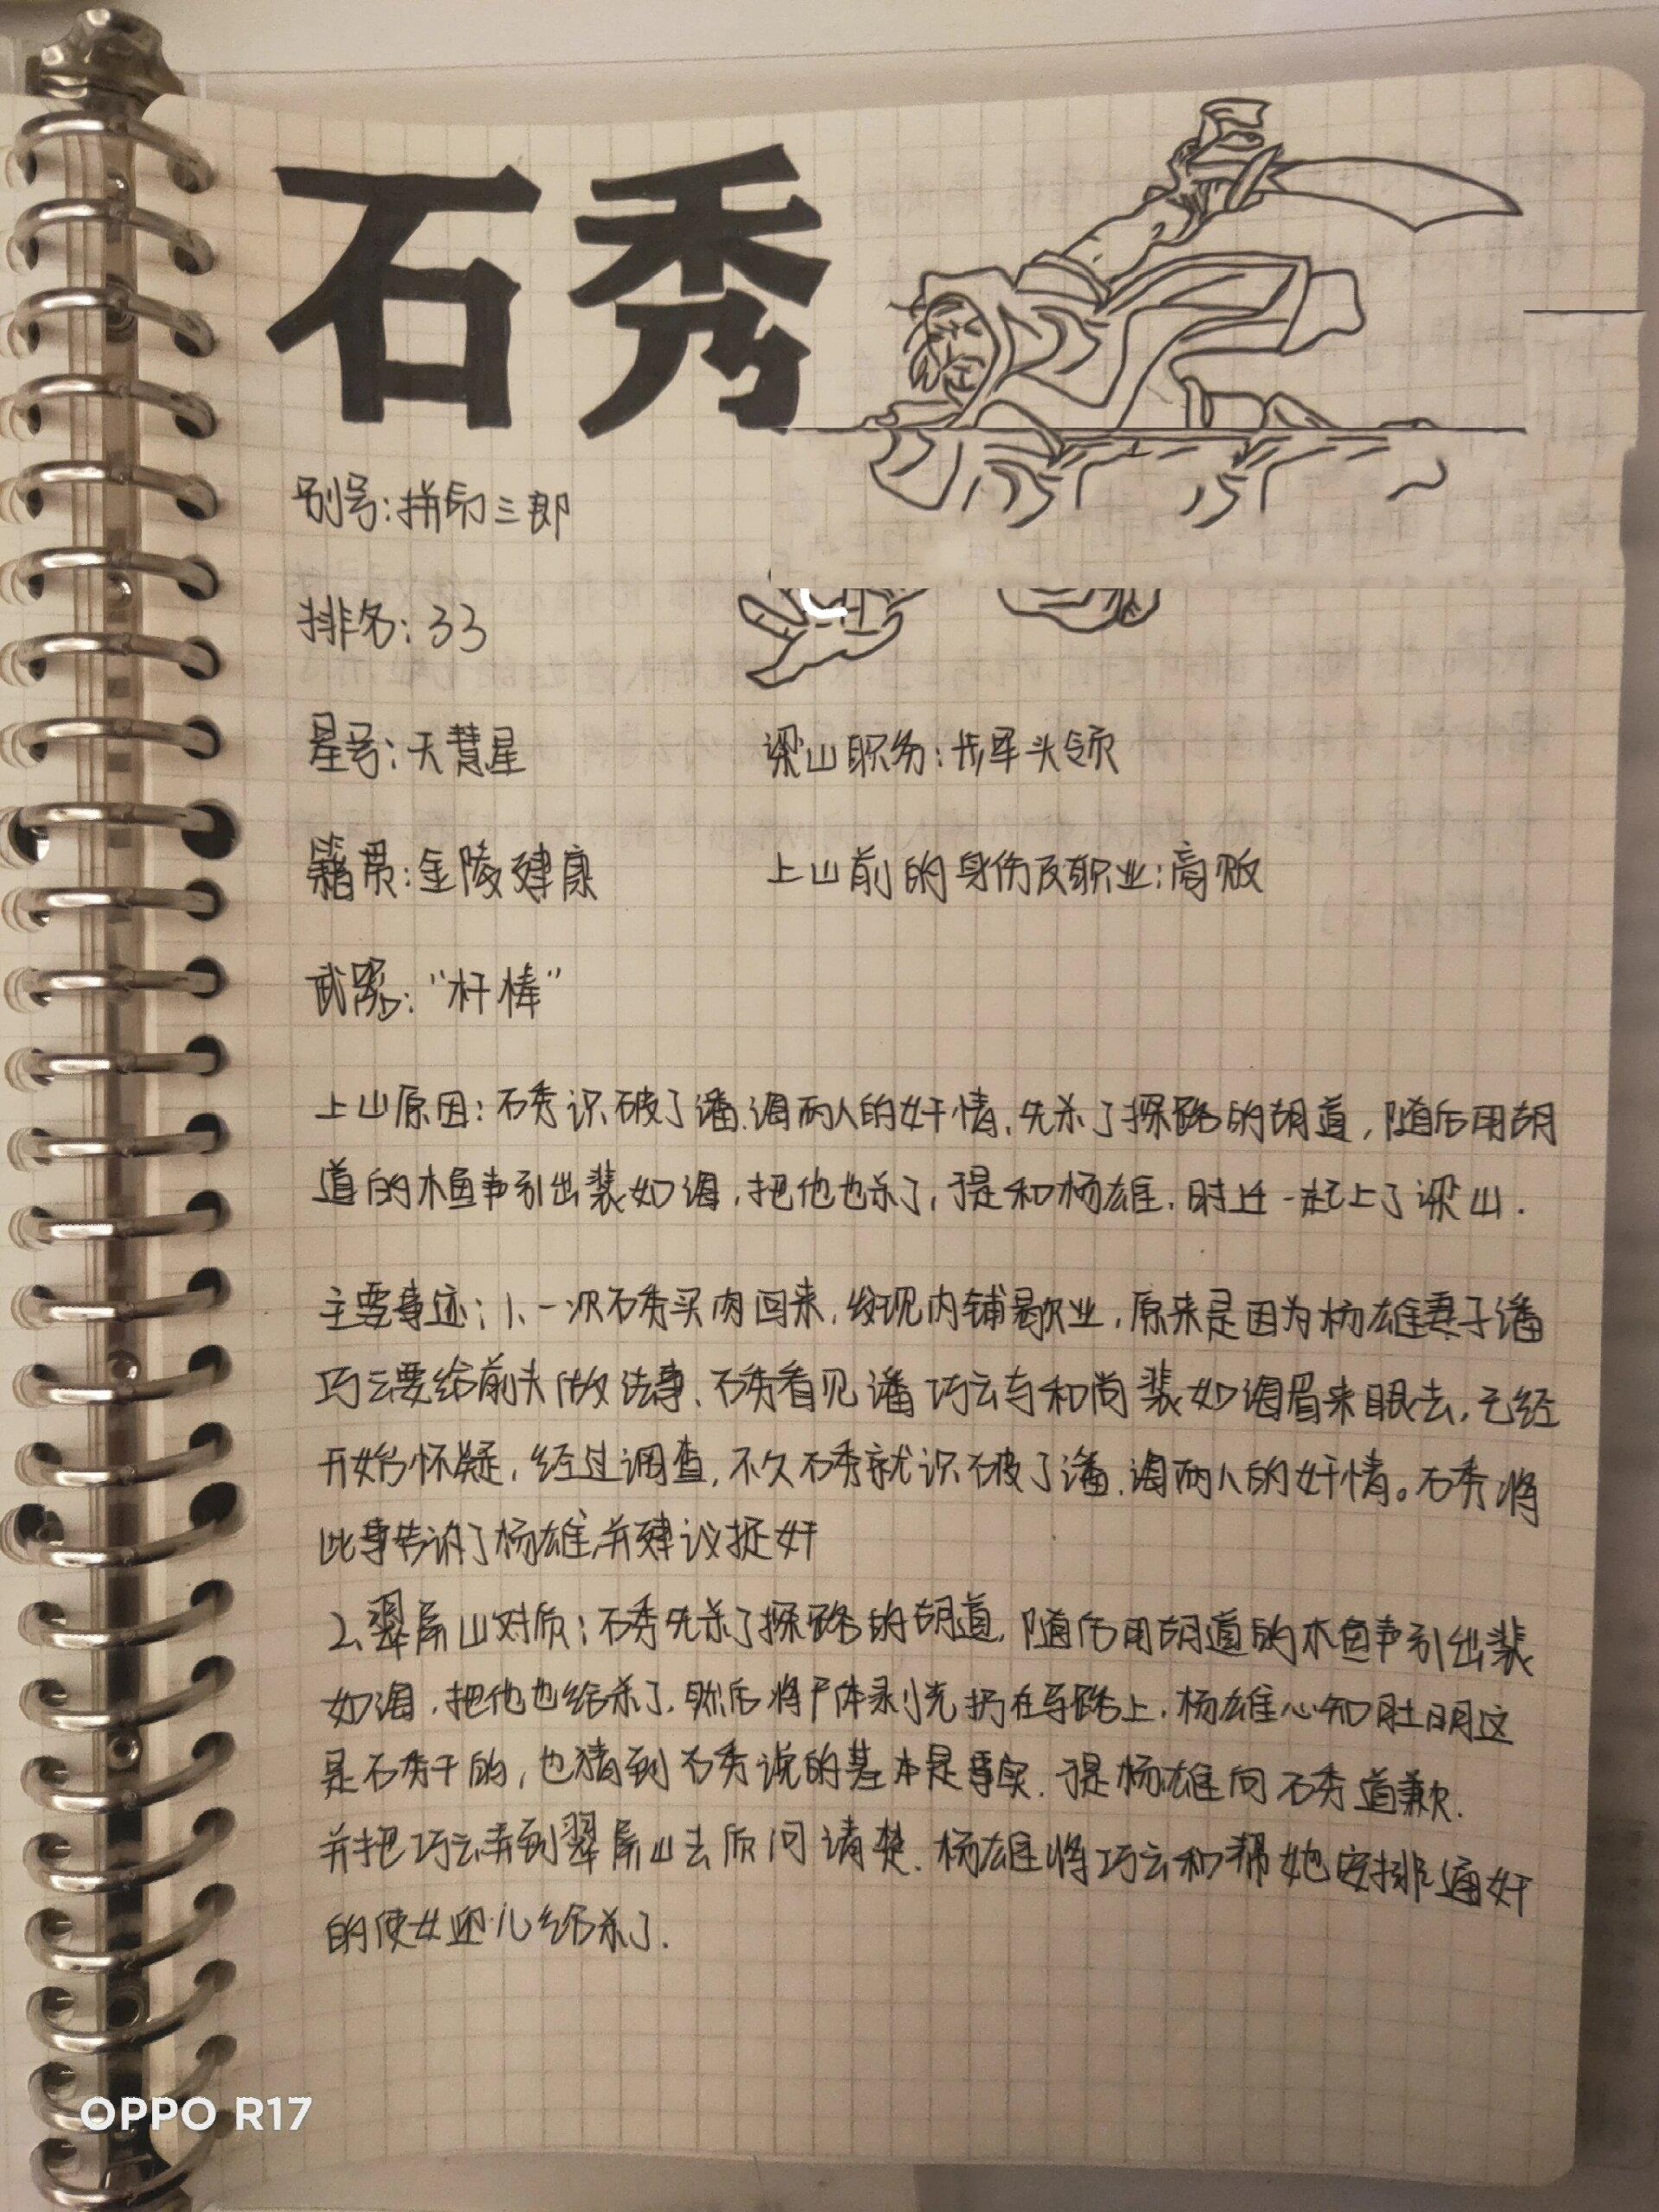 石秀
别号:拼命三郎
排名:33
星号:天慧星
梁山职务:步军头领
籍贯:金陵建康
上山前的身份及职业:商贩
武器:“杆棒”
上山原因:石秀识破了潘.海两人的奸情,先杀了探路的胡道,随后用胡
道的木鱼声引出裴如海,把他也杀了,于是和杨雄.时迁一起上了梁山.
主要事迹:1、一次石秀买肉回来,发现肉铺歇业,原来是因为杨雄妻子潘
巧云要给前夫做法事、石秀看见潘巧云与和尚裴如海眉来眼去,已经
开始怀疑,经过调查,不久石秀就识破了潘.海两人的奸情。石秀将
此事告诉了杨雄,并建议捉奸
2、翠屏山对质:石秀先杀了探路的胡道,随后用胡道的木鱼声引出裴
如海,把他也给杀了,然后将尸体剥光扔在路上.杨雄心知肚明这
是石秀干的,也猜到石秀说的基本是事实.于是杨雄向石秀道歉.
并把巧云弄到翠屏山去质问清楚.杨雄将巧云和帮她安排通奸
的使女迎儿给杀了.
OPPO R17